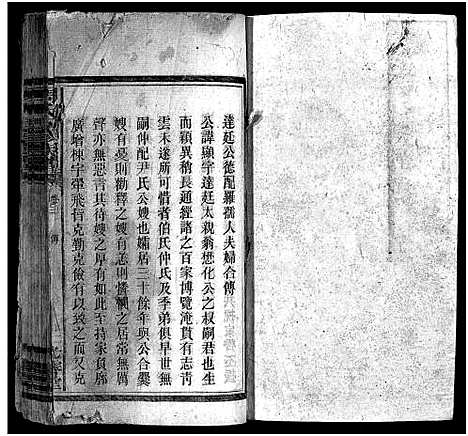 達廷公德配羅孺人夫婦合傳
公諱顯字達廷太親翁懋化公之叔嗣君也生
而穎異稍長通經諸之百家博覽淹貫有志青
雲未遂所可惜者伯氏仲氏及季弟俱早世無
嗣仲配尹氏公嫂也孀居三十餘年與公合爨
嫂有憂則勸釋之嫂有恙則憐之居常無厲
聲亦無惡言其待嫂之厚有如此至持家負
廣增棟宇翬飛皆克勤克儉有以致之而又克